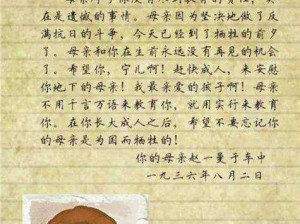 在是遗憾的事情。母亲因为坚决地做了反
满抗日的斗争，今天已经到了牺牲的前夕
了。母亲和你在生前永远没有再见的机会
了。希望你，宁儿啊！赶快成人，来安慰
你地下的母亲！我最亲爱的孩子啊！母亲
不用千言万语来教育你，就用实行来教育
你。在你长大成人之后，希望不要忘记你
的母亲是为国而牺牲的！
你的母亲赵一曼于车中
一九三六年八月二日